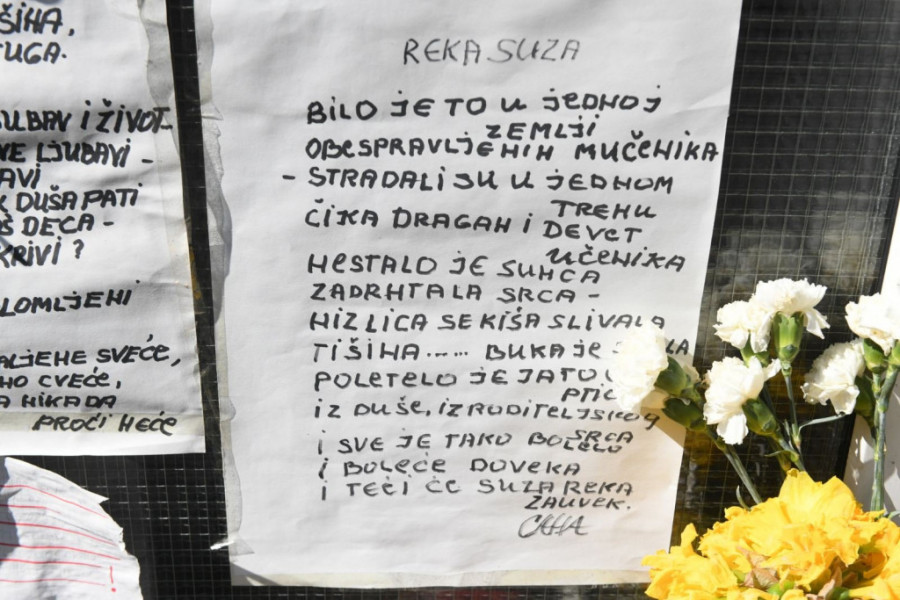 ŠIHA,
TUGA.
LJUBAV I ŽIVOT-
VE LJUBAVI -
AVI
K DUŠA PATI
Š DECA -
KRIVI ?
LOMLJENI
ALJENE SVEĆE,
HO CVEĆE,
A NIKADA
PROĆI NEĆE
REKA SUZA
BILO JE TO U JEDNOJ
ZEMLJI
OBESPRAVLJENIH MUČENIKA
- STRADALI SU U JEDNOM
TRENU
ČIKA DRAGAN I DEVET
UČENIKA
NESTALO JE SUNCA
ZADRHTALA SRCA -
NIZ LICA SE KIŠA SLIVALA
TIŠINA...... BUKA JE
POLETELO JE JATO
PTIC
IZ DUŠE, IZ RODITELJSKOG
SRCA
I SVE JE TAKO BOLELO
I BOLEĆE DOVEKA
I TEĆI ĆE SUZA REKA
ZAUVEK.